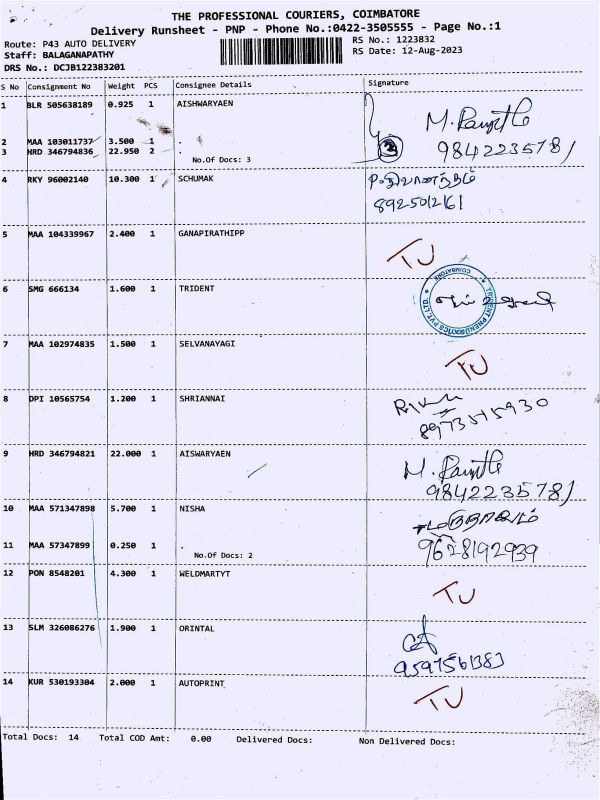 THE PROFESSIONAL COURIERS, COIMBATORE
Delivery Runsheet - PNP - Phone No.:0422-3505555 - Page No.:1
Route: P43 AUTO DELIVERY RS No.: 1223832
Staff: BALAGANAPATHY RS Date: 12-Aug-2023
DRS No.: DCJB122383201
S No Consignment No Weight PCS Consignee Details Signature
1 BLR 505638189 0.925 1 AISHWARYAEN
2 MAA 103011737 3.500 1 .
3 HRD 346794836 22.950 2 . 3 9842235781
No.Of Docs: 3
4 RKY 96002140 10.300 1 SCHUMAK
8925012161
5 MAA 104339967 2.400 1 GANAPIRATHIPP
TU
6 SMG 666134 1.600 1 TRIDENT
TRIDENT PNEUMATICS PVT. LTD. COIMBATORE
7 MAA 102974835 1.500 1 SELVANAYAGI
TU
8 DPI 10565754 1.200 1 SHRIANNAI
8973515930
9 HRD 346794821 22.000 1 AISWARYAEN
9842235781
10 MAA 571347898 5.700 1 NISHA
11 MAA 57347899 0.250 1 . 9628192939
No.Of Docs: 2
12 PON 8548201 4.300 1 WELDMARTYT
TU
13 SLM 326086276 1.900 1 ORINTAL
9597561383
14 KUR 530193304 2.000 1 AUTOPRINT
TU
Total Docs: 14 Total COD Amt: 0.00 Delivered Docs: Non Delivered Docs: